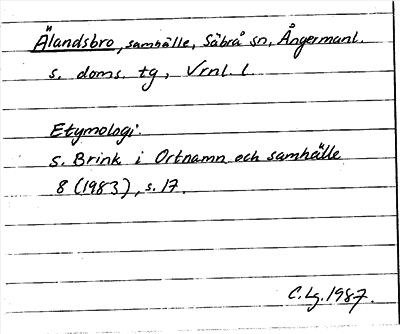 Älandsbro, samhälle, Säbrå sn, Ångermanl.
s. doms. tg, Vrnl. l.
Etymologi:
S. Brink i Ortnamn och samhälle
8 (1983), s. 17.
C. Lg. 1987.